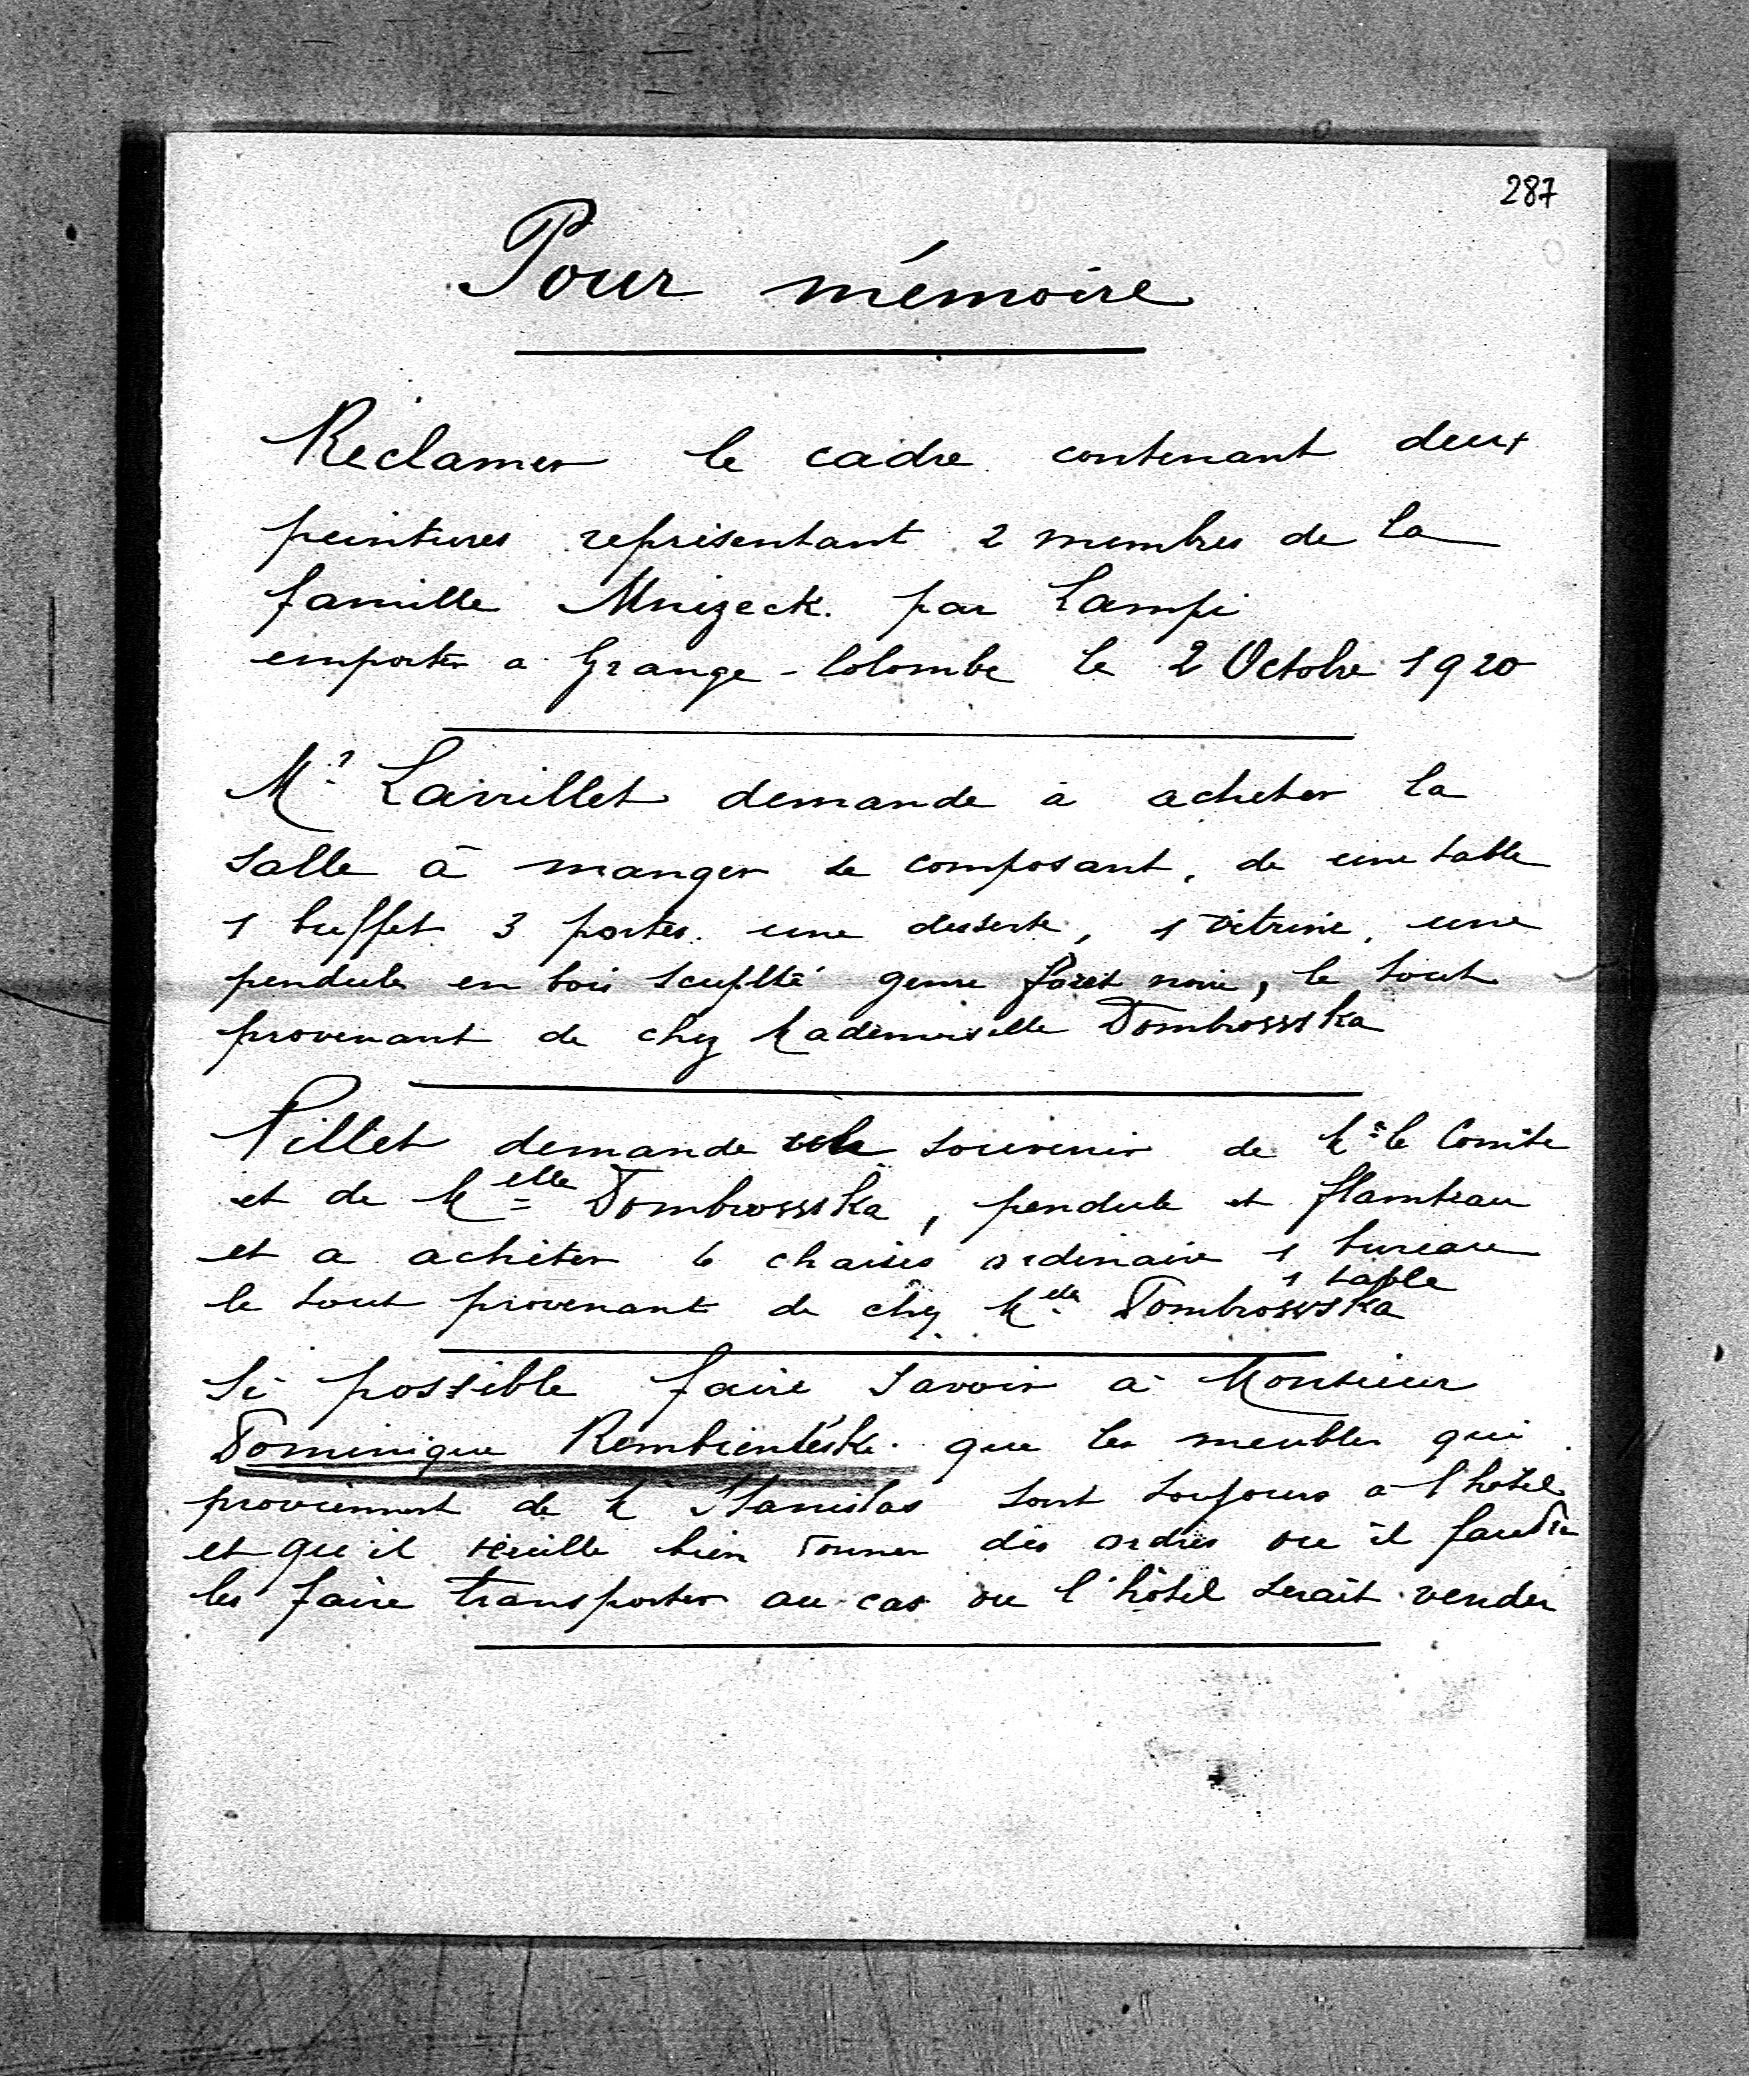 287
Pour mémoire
Réclamer le cadre contenant deux
peintures représentant 2 membres de la
famille Mnizeck. par Lampi
emporter a Grange-Colombe le 2 Octobre 1920
Mr Lavrillet demande à acheter la
salle à manger se composant, de une table
1 buffet 3 portes. une desserte, 1 vitrine, une
pendule en bois scuplté genre forêt noire, le tout
provenant de chez Mademoiselle Dombrowska
Pillet demande souvenir de Mr le Comte
et de Melle Dombrowska, pendule et flambeau
et a acheter 6 chaises ordinaire 1 bureau
1 table
le tout provenant de chez Melle Dombrowska
Si possible faire savoir à Monsieur
Dominique que les meubles qui
proviennent de M Stanislas sont toujours a l'hôtel
et qu'il veuille bien donner des ordres ou il faudra
les faire transporter au cas ou l'hôtel serait vendu